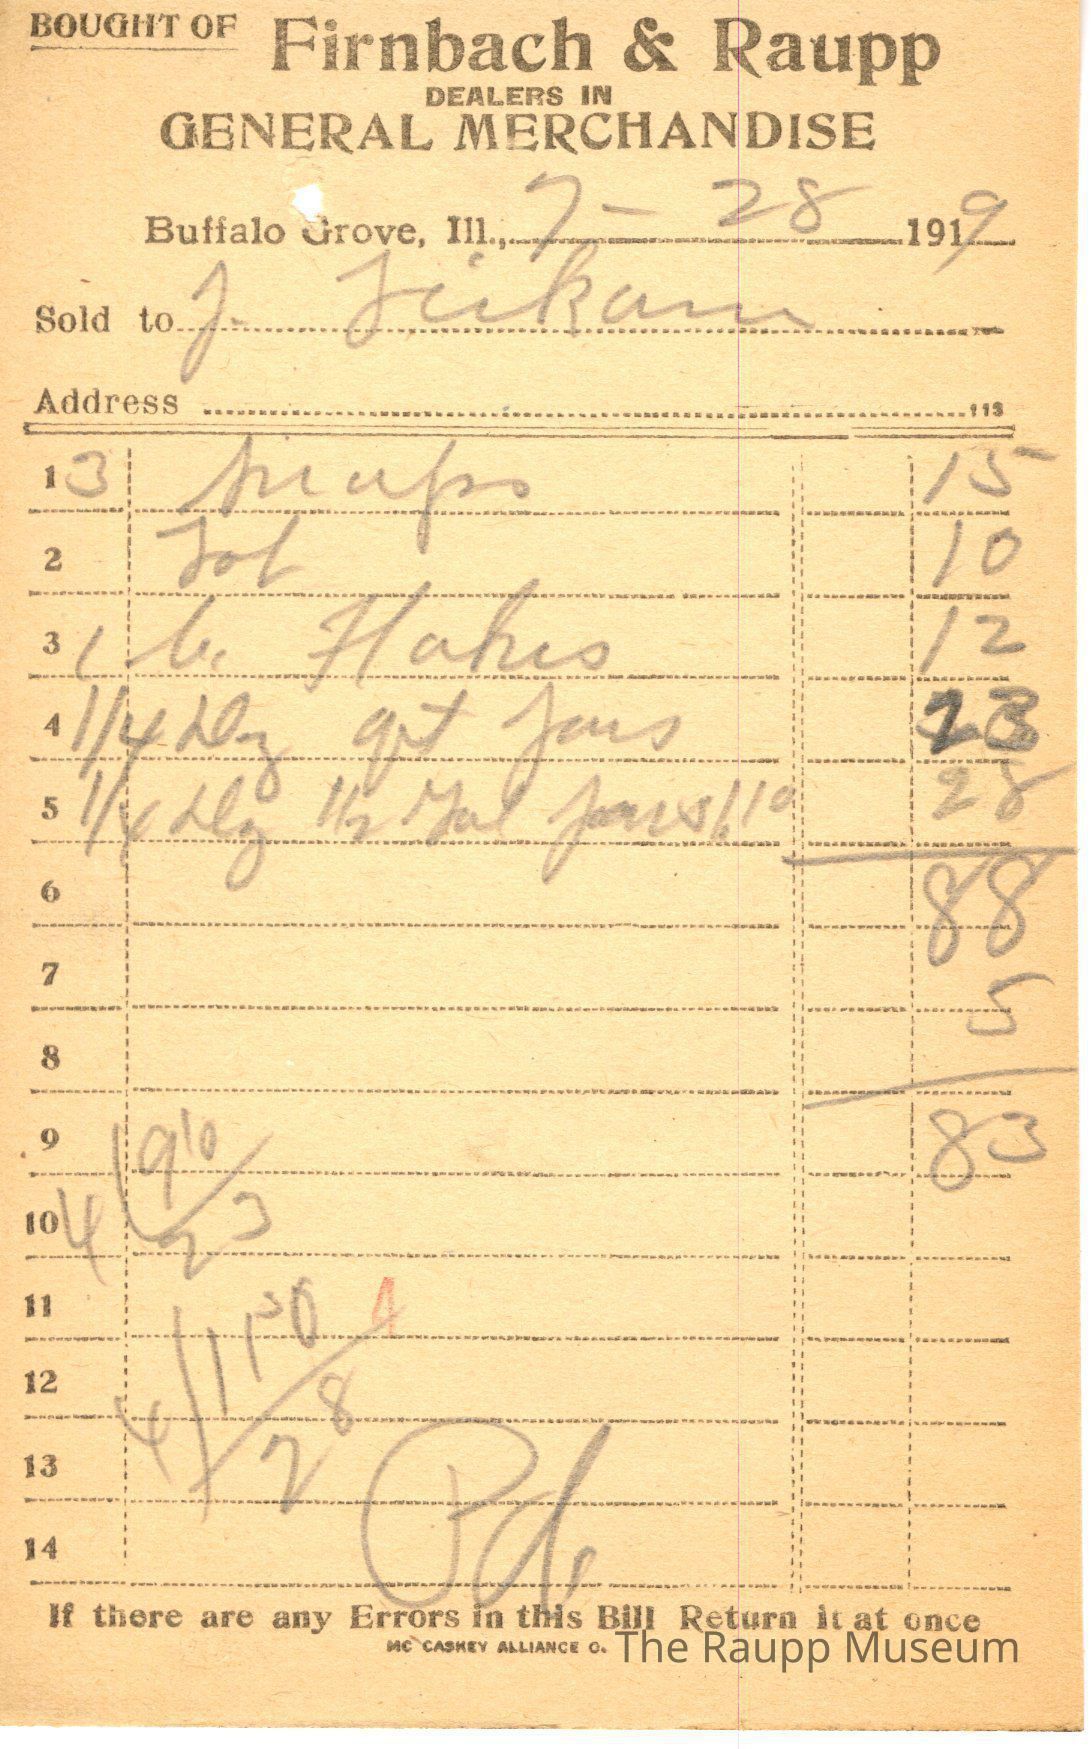 BOUGHT OF Firnbach & Raupp
DEALERS IN
GENERAL MERCHANDISE
Buffalo Grove, Ill., 7 - 28 1919
Sold to J.
Address 113
1 3 snaps 15
2 Tob 10
3 1 C. Flakes 12
4 1/4 Dz qt Jars 23
5 1/4 Dz 1/2 Gal Jars 1 10 28
6 88
7 5
8
9 83
4 90
10 23
11 1 10 4
12 4 28
13
Pd
14
If there are any Errors in this Bill Return it at once
MC CASKEY ALLIANCE O.
The Raupp Museum